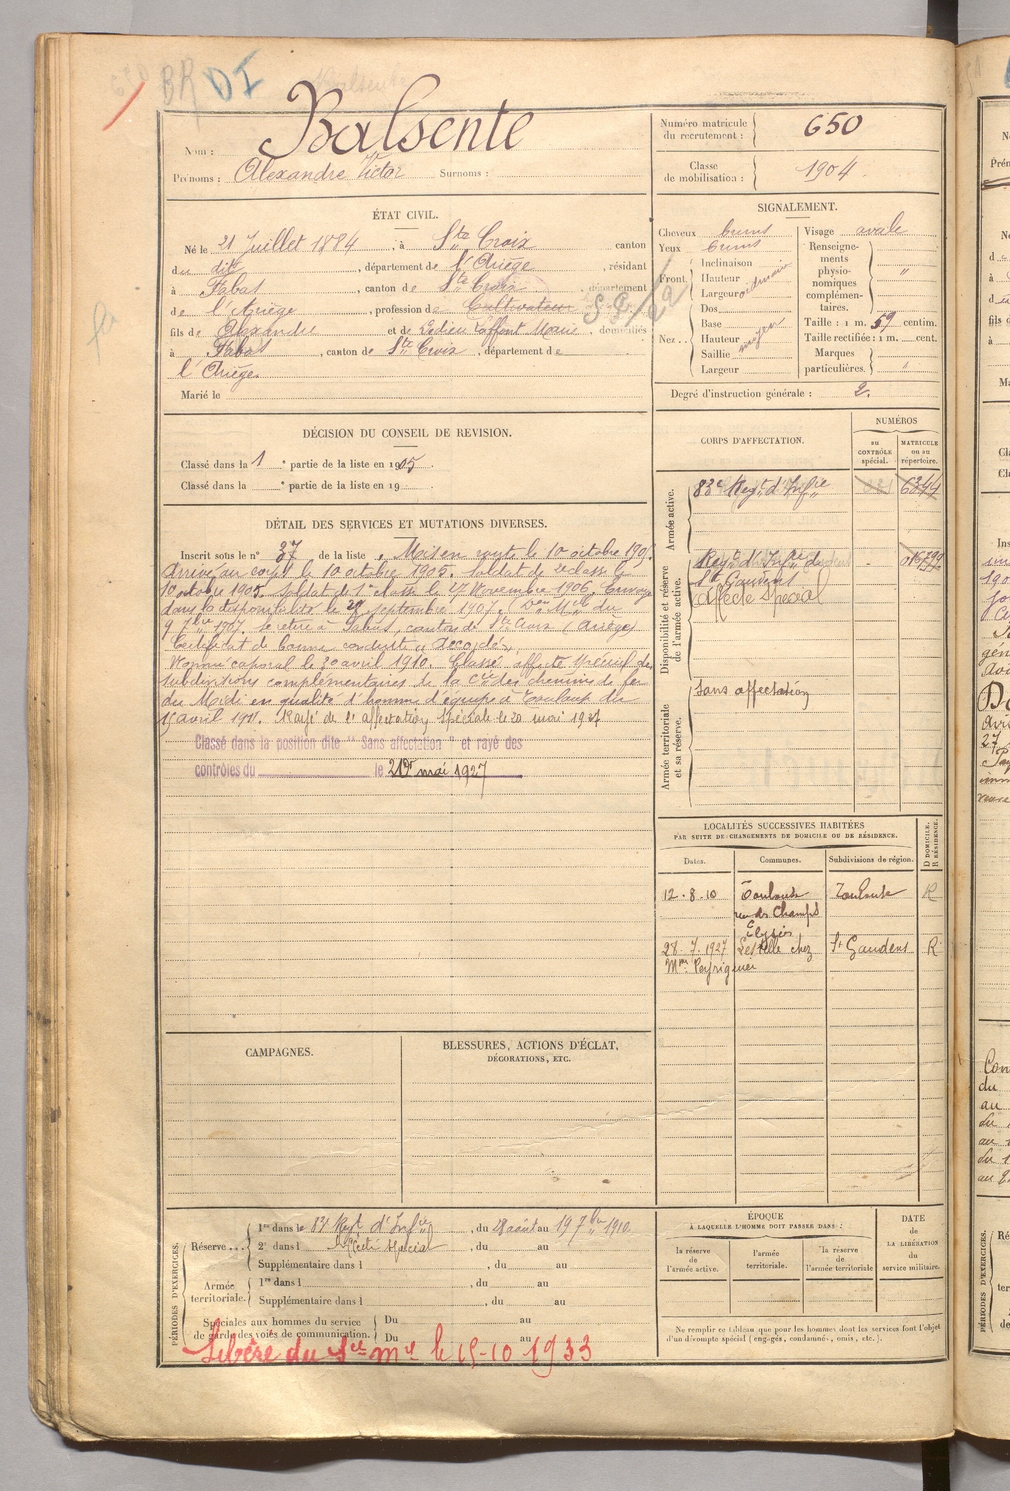 BR DI
Nom : Balsente
Prénoms : Alexandre Victor Surnoms :
Numéro matricule du recrutement : 650
Classe de mobilisation : 1904
ÉTAT CIVIL.
Né le 21 Juillet 1884, à Ste Croix canton
du dit, département de l'Ariège, résidant
à Fabas, canton de Ste Croix, département
de l'Ariège, profession de Cultivateur
fils de Alexandre et de Marie, domiciliés
à Fabas, canton de Ste Croix, département de
l'Ariège
Marié le
SIGNALEMENT.
Cheveux bruns
Yeux bruns
Front. Inclinaison
Hauteur
Largeur ordinaire
Nez. Dos
Base
Hauteur
Saillie moyen
Largeur
Visage ovale
Renseignements physionomiques complémentaires. "
Taille : 1 m. 59 centim.
Taille rectifiée : 1 m. cent.
Marques particulières. "
Degré d'instruction générale : 2.
DÉCISION DU CONSEIL DE REVISION.
Classé dans la 1e partie de la liste en 1905.
Classé dans la e partie de la liste en 19
DÉTAIL DES SERVICES ET MUTATIONS DIVERSES.
Inscrit sous le n° 37 de la liste. Mis en route le 10 octobre 1905.
Arrivé au corps le 10 octobre 1905. Soldat de 2e classe le
10 octobre 1905. Soldat de 1re classe le Novembre 1906. Envoyé
dans la disponibilité le 28 septembre 1907. ( du
9 7bre 1907. Se retire à Fabas, canton de Ste Croix (Ariège)
Certificat de bonne conduite "Accordé".
Nommé caporal le 30 avril 1910. Classé affecté spécial des
subdivisions complémentaires de la Cie des chemins de fer
du Midi en qualité d'homme d'équipe à Toulouse du
15 avril 1911. Rayé de l'affectation spéciale le 20 mai 1927
Classé dans la position dite "Sans affectation" et rayé des
contrôles du le 21 mai 1927
CORPS D'AFFECTATION.
NUMÉROS
au CONTRÔLE spécial.
MATRICULE ou au répertoire.
Armée active.
83e Regt d'Infie 6344
Disponibilité et réserve de l'armée active.
Regt d'Infie de
St Gaudens
Affecté Spécial
Armée territoriale et sa réserve.
Sans affectation
LOCALITÉS SUCCESSIVES HABITÉES
PAR SUITE DE CHANGEMENTS DE DOMICILE OU DE RÉSIDENCE.
Dates. Communes. Subdivisions de région. D DOMICILE. R RÉSIDENCE.
12-8-10 Toulouse Toulouse R
rue des Champs
Elysées
28-7-1927 Lestelle chez St Gaudens R
Mme Peyriguier
CAMPAGNES.
BLESSURES, ACTIONS D'ÉCLAT,
DÉCORATIONS, ETC.
PÉRIODES D'EXERCICES.
Réserve... 1re dans le 83e Regt d'Infie, du 28 août au 19 7bre 1910
2e dans l Affecté spécial, du au
Supplémentaire dans l, du au
Armée territoriale. 1re dans l, du au
Supplémentaire dans l, du au
Spéciales aux hommes du service de garde des voies de communication. Du au
Du au
Libéré du Sce Mre le 15-10 1933
ÉPOQUE
À LAQUELLE L'HOMME DOIT PASSER DANS :
la réserve de l'armée active. l'armée territoriale. la réserve de l'armée territoriale
DATE de LA LIBÉRATION du service militaire.
Ne remplir ce tableau que pour les hommes dont les services font l'objet
d'un décompte spécial (engagés, condamnés, omis, etc.).